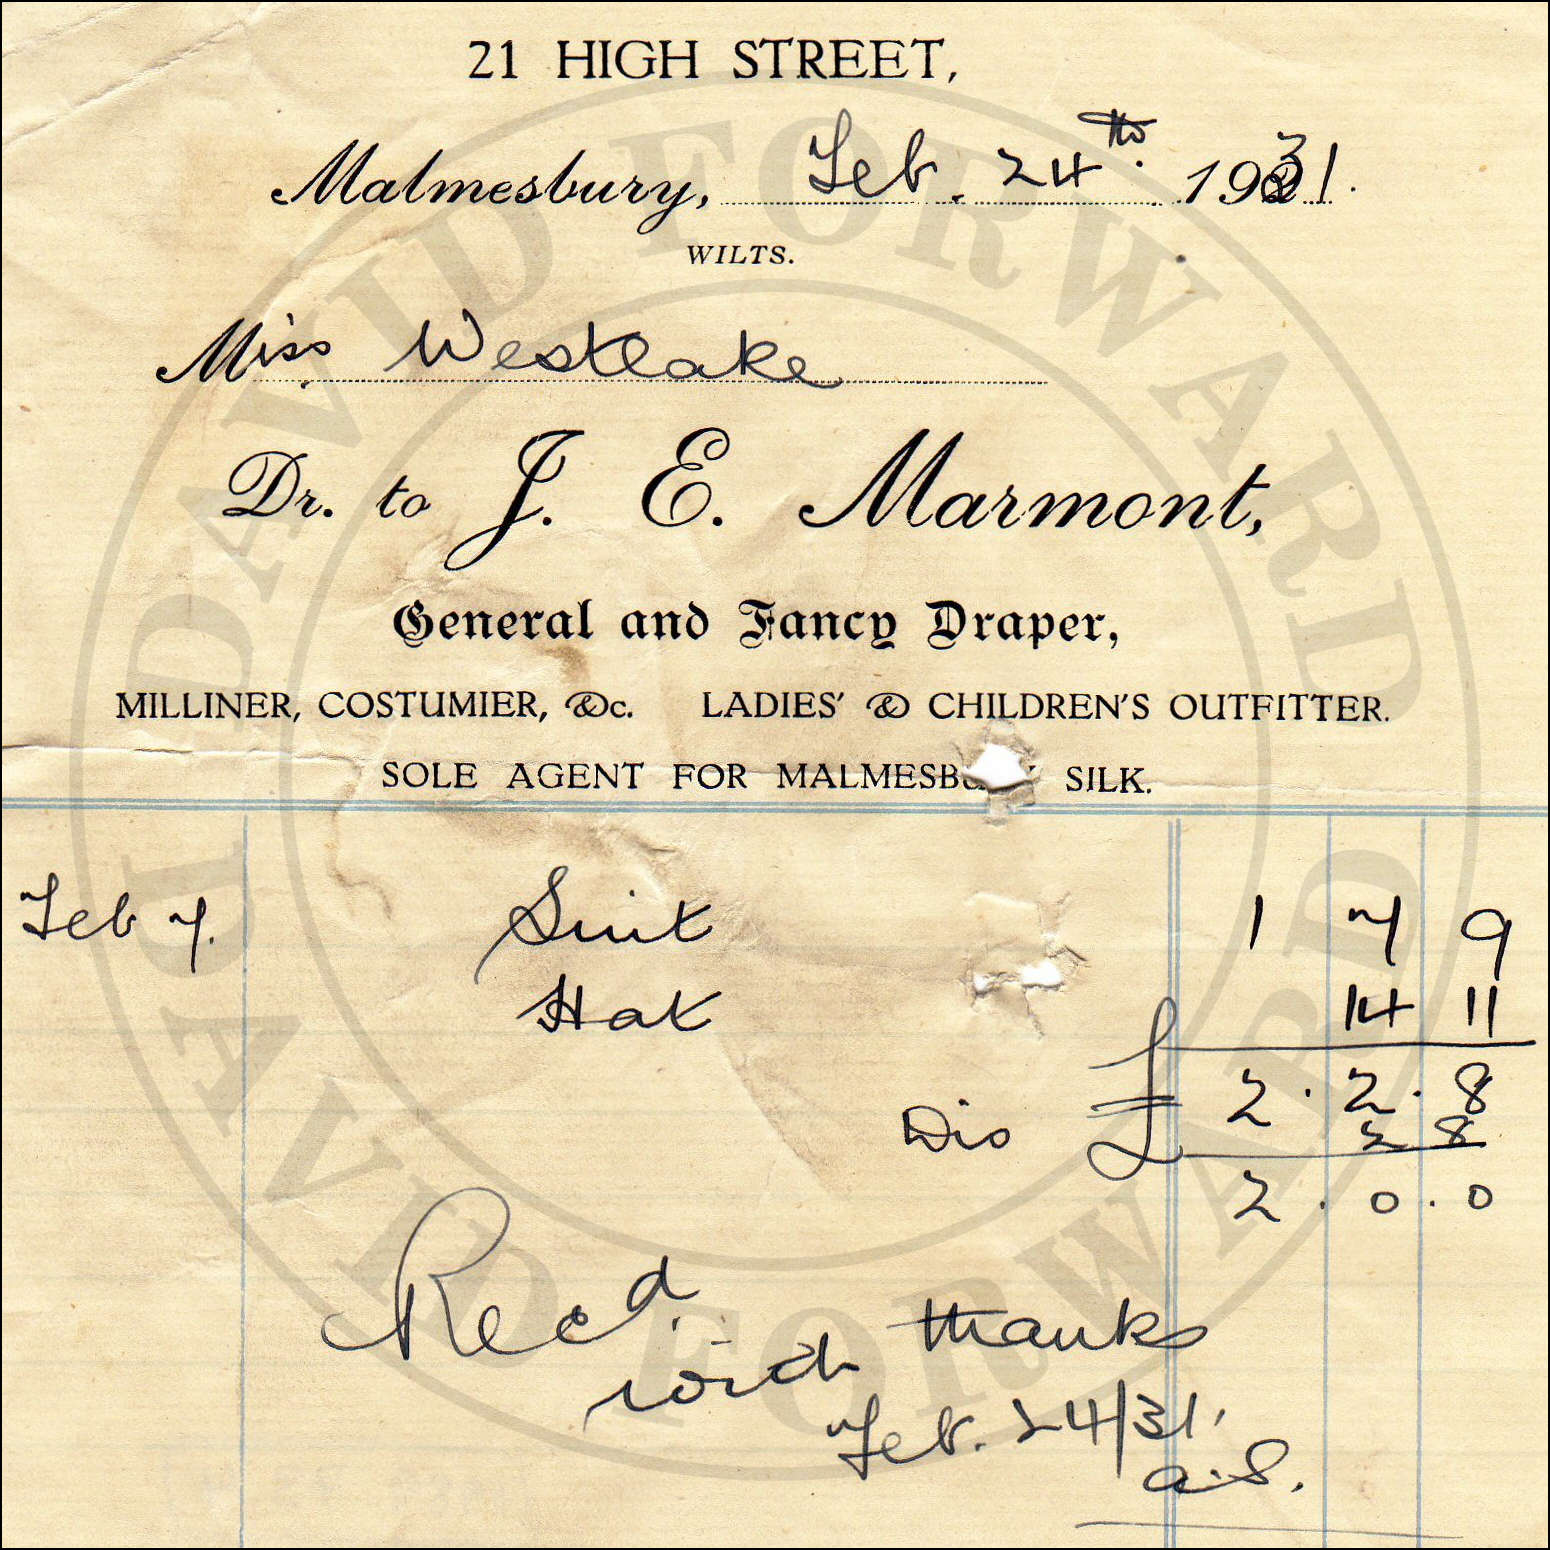 21 HIGH STREET,
Malmesbury, Feb. 24th. 1931.
WILTS.
Miss Westlake
Dr. to J. E. Marmont,
General and Fancy Draper,
MILLINER, COSTUMIER, &c. LADIES' & CHILDREN'S OUTFITTER.
SOLE AGENT FOR MALMESBURY SILK.
Feb 7. Suit 1 7 9
Hat 14 11
£ 2 . 2 . 8
Dis 2 8
2 . 0 . 0
Recd.
with thanks
Feb. 24/31.
a.S.
DAVID FORWARD
DAVID FORWARD